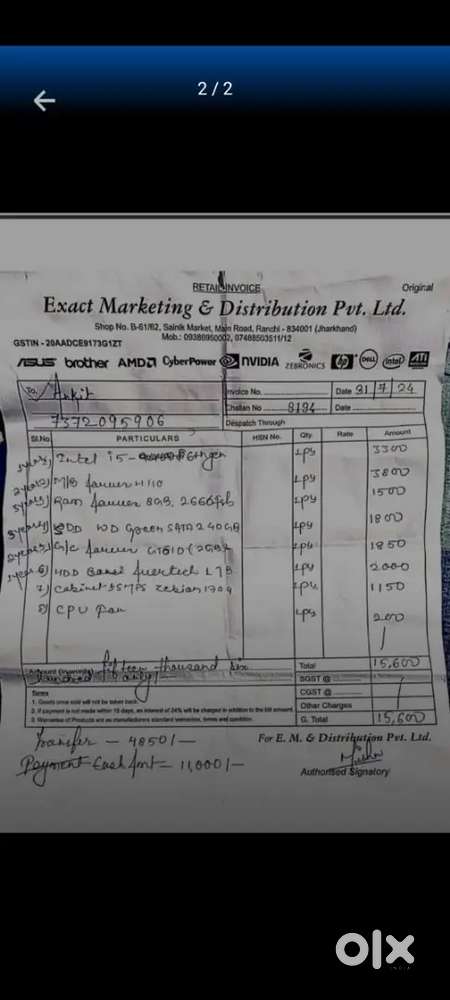 2 / 2
RETAIL INVOICE
Original
Exact Marketing & Distribution Pvt. Ltd.
Shop No. B-61/62, Sainik Market, Main Road, Ranchi - 834001 (Jharkhand)
Mob.: 09386950002, 07488503511/12
GSTIN - 20AADCE9173G1ZT
ASUS brother AMD CyberPower NVIDIA ZEBRONICS hp DELL intel ATI
To, Ankit
7372095906
Invoice No. Date 31/7/24
Challan No 9194 Date
Despatch Through
Sl.No. PARTICULARS HSN No. Qty Rate Amount
Intel i5- 6th gen 1py 3300
M/B H110 1py 3800
Ram 8GB, 2666 1py 1500
WD Green SATA 240GB 1py 1800
G/c GT610 (2GB) 1py 1850
HDD 1TB 1py 2000
7) Cabinet 1py 1150
8) CPU Fan 1py 200
Amount (In words) fifteen thousand six hundred only
Total 15,600
SGST @
CGST @
Other Charges
G. Total 15,600
Terms
1. Goods once sold will not be taken back.
2. If payment is not made within 15 days, an interest of 24% will be charged in addition to the bill amount.
3. Warranties of Products are as manufacturers standard warranties, terms and condition.
Transfer - 4850/-
For E. M. & Distribution Pvt. Ltd.
Payment Cash Amt = 11,000/-
Authorised Signatory
olx
INDIA